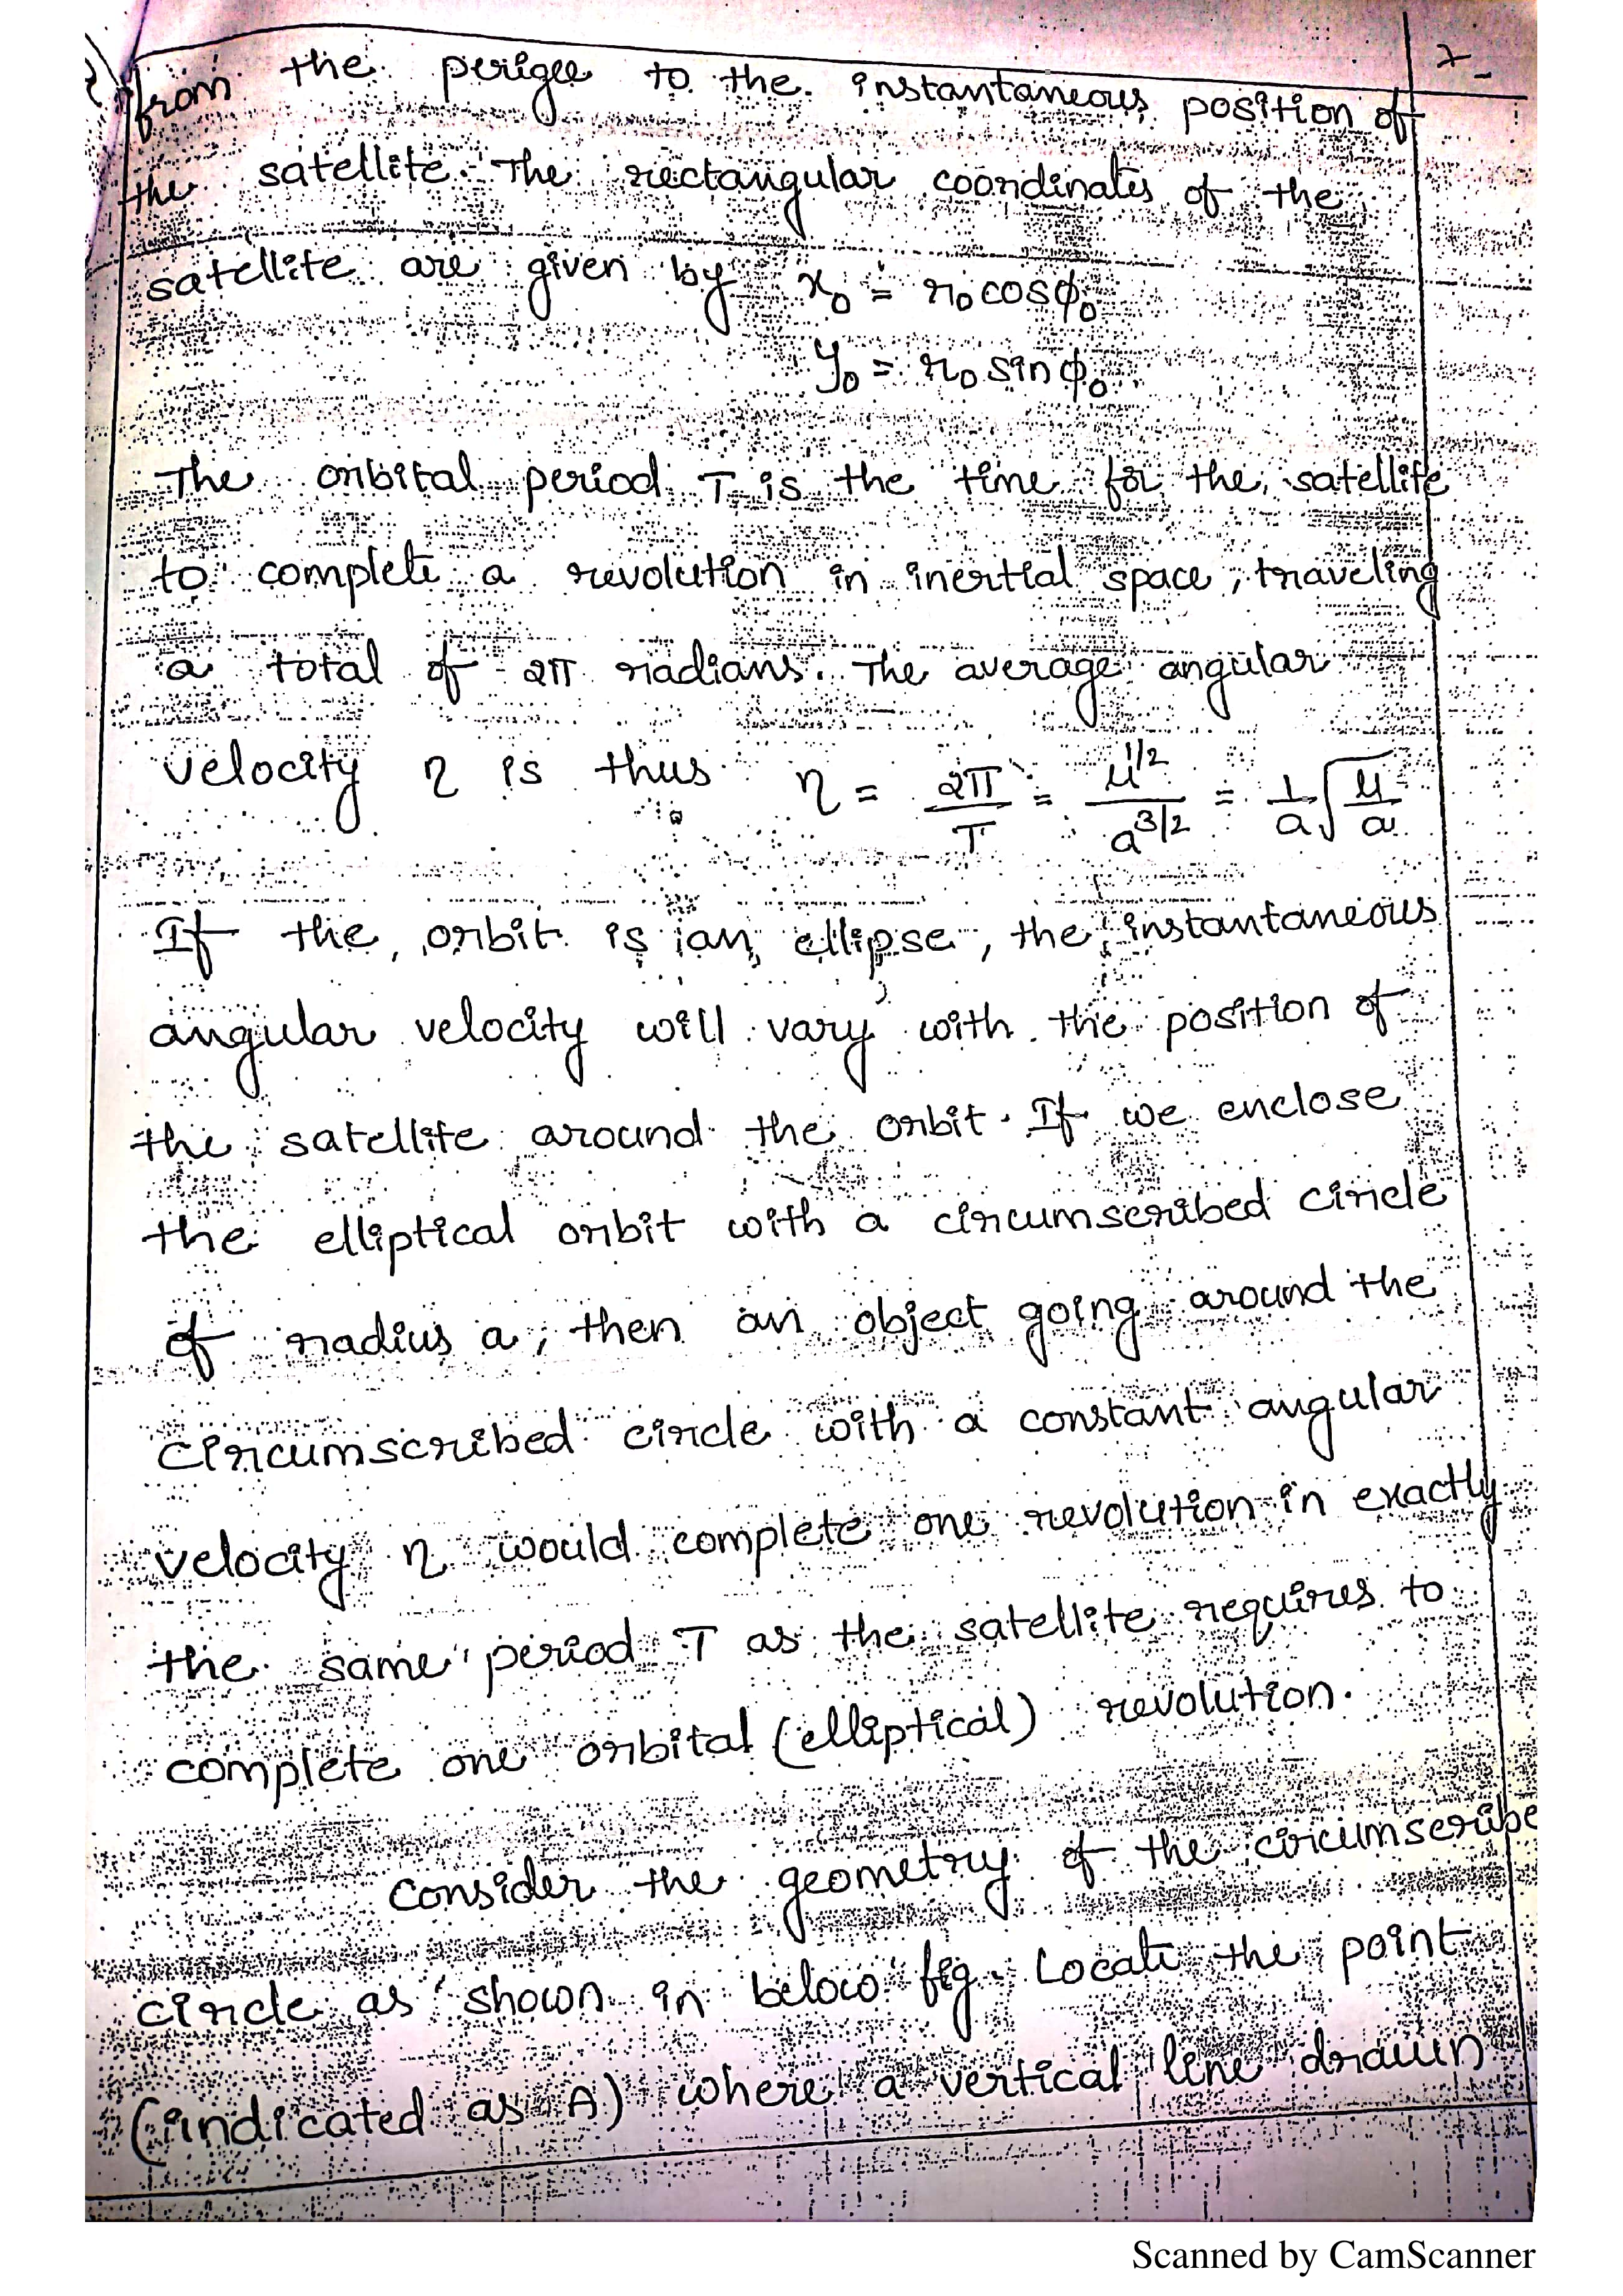 7
from the perigee to the instantaneous position of
the satellite. The rectangular coordinates of the
satellite are given by x₀ = r₀ cosφ₀
y₀ = r₀ sinφ₀
The orbital period T is the time for the satellite
to complete a revolution in inertial space, traveling
a total of 2π radians. The average angular
velocity η is thus η = 2π/T = μ^1/2/a^3/2 = 1/a √(μ/a)
If the orbit is an ellipse, the instantaneous
angular velocity will vary with the position of
the satellite around the orbit. If we enclose
the elliptical orbit with a circumscribed circle
of radius a, then an object going around the
circumscribed circle with a constant angular
velocity η would complete one revolution in exactly
the same period T as the satellite requires to
complete one orbital (elliptical) revolution.
Consider the geometry of the circumscribe
circle as shown in below fig. Locate the point
(indicated as A) where a vertical line drawn
Scanned by CamScanner